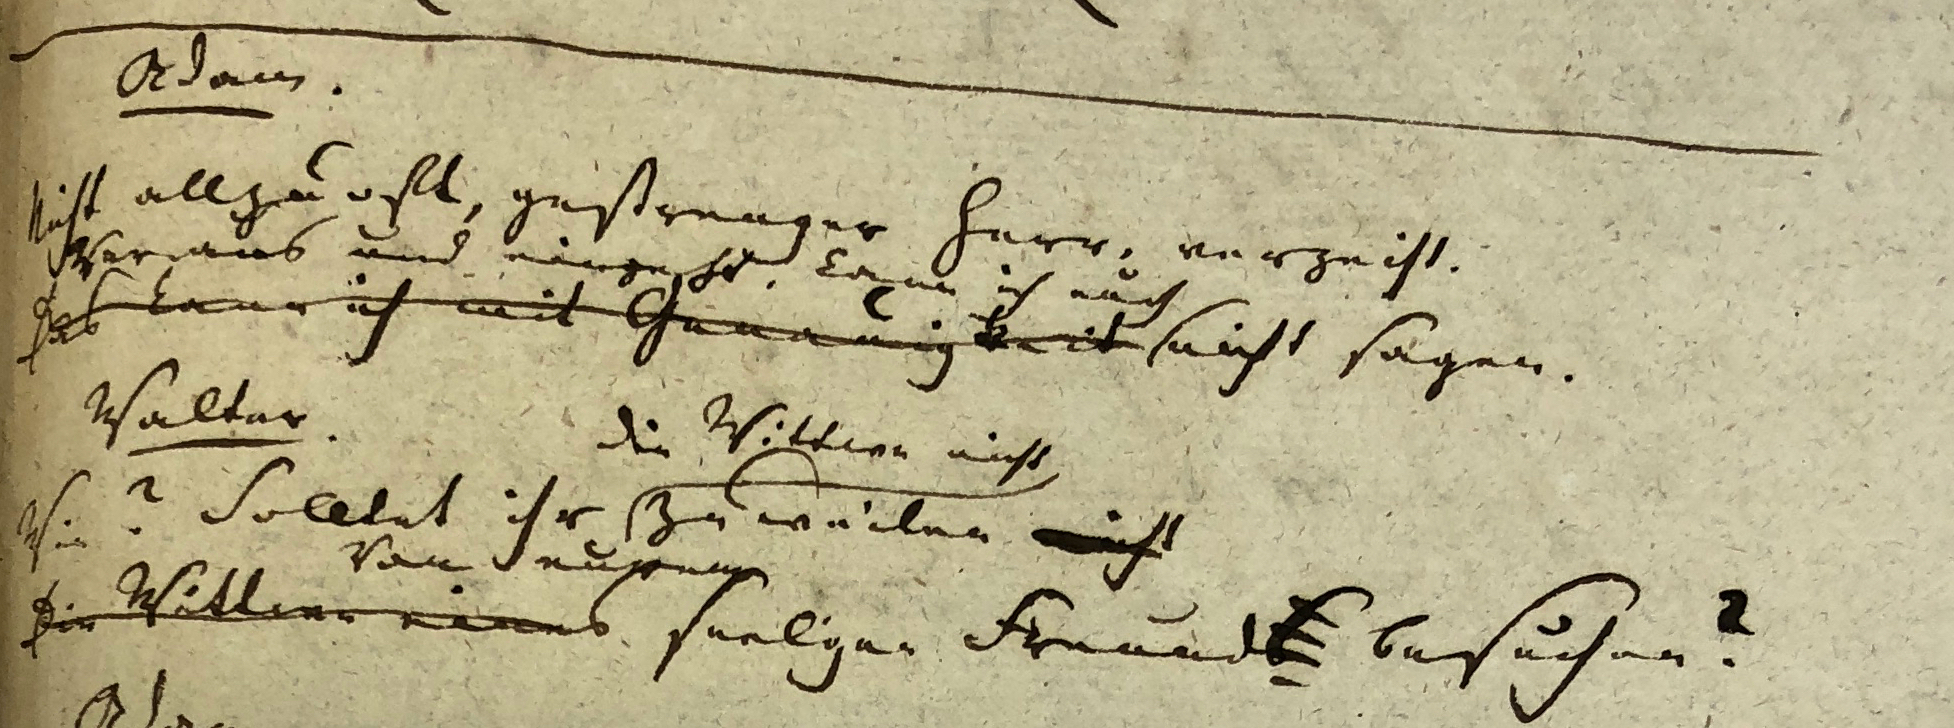 Adam.
Nicht allzuoft, gestrenger Herr, verzeiht.
und kann ich euch
Das kann ich mit Genauigkeit nicht sagen.
Walter.
die Wittwe nicht
Wie? Solltet ihr zuweilen nicht
Von eurem
Die Wittwe eines seelgen Freund besuchen?